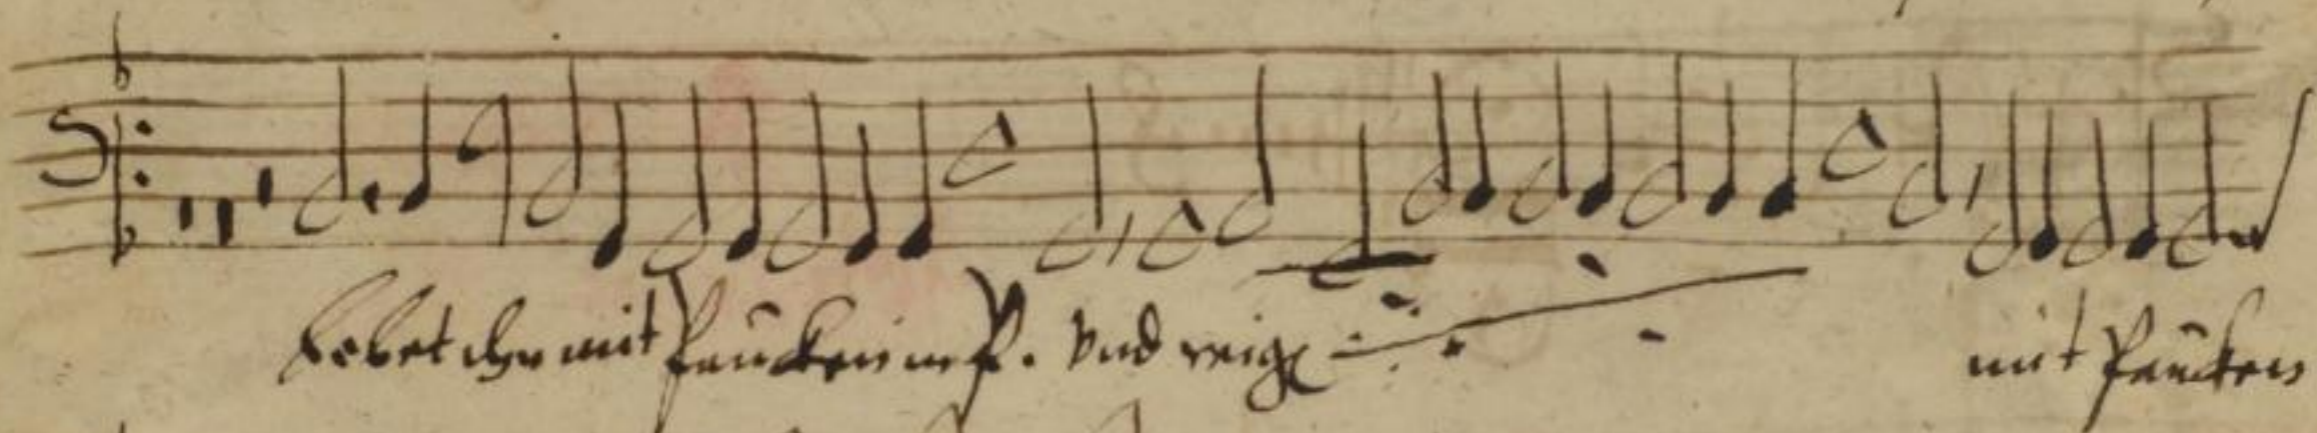 Lobet ihn mit Paucken mit P. Vnd reig mit Paucken